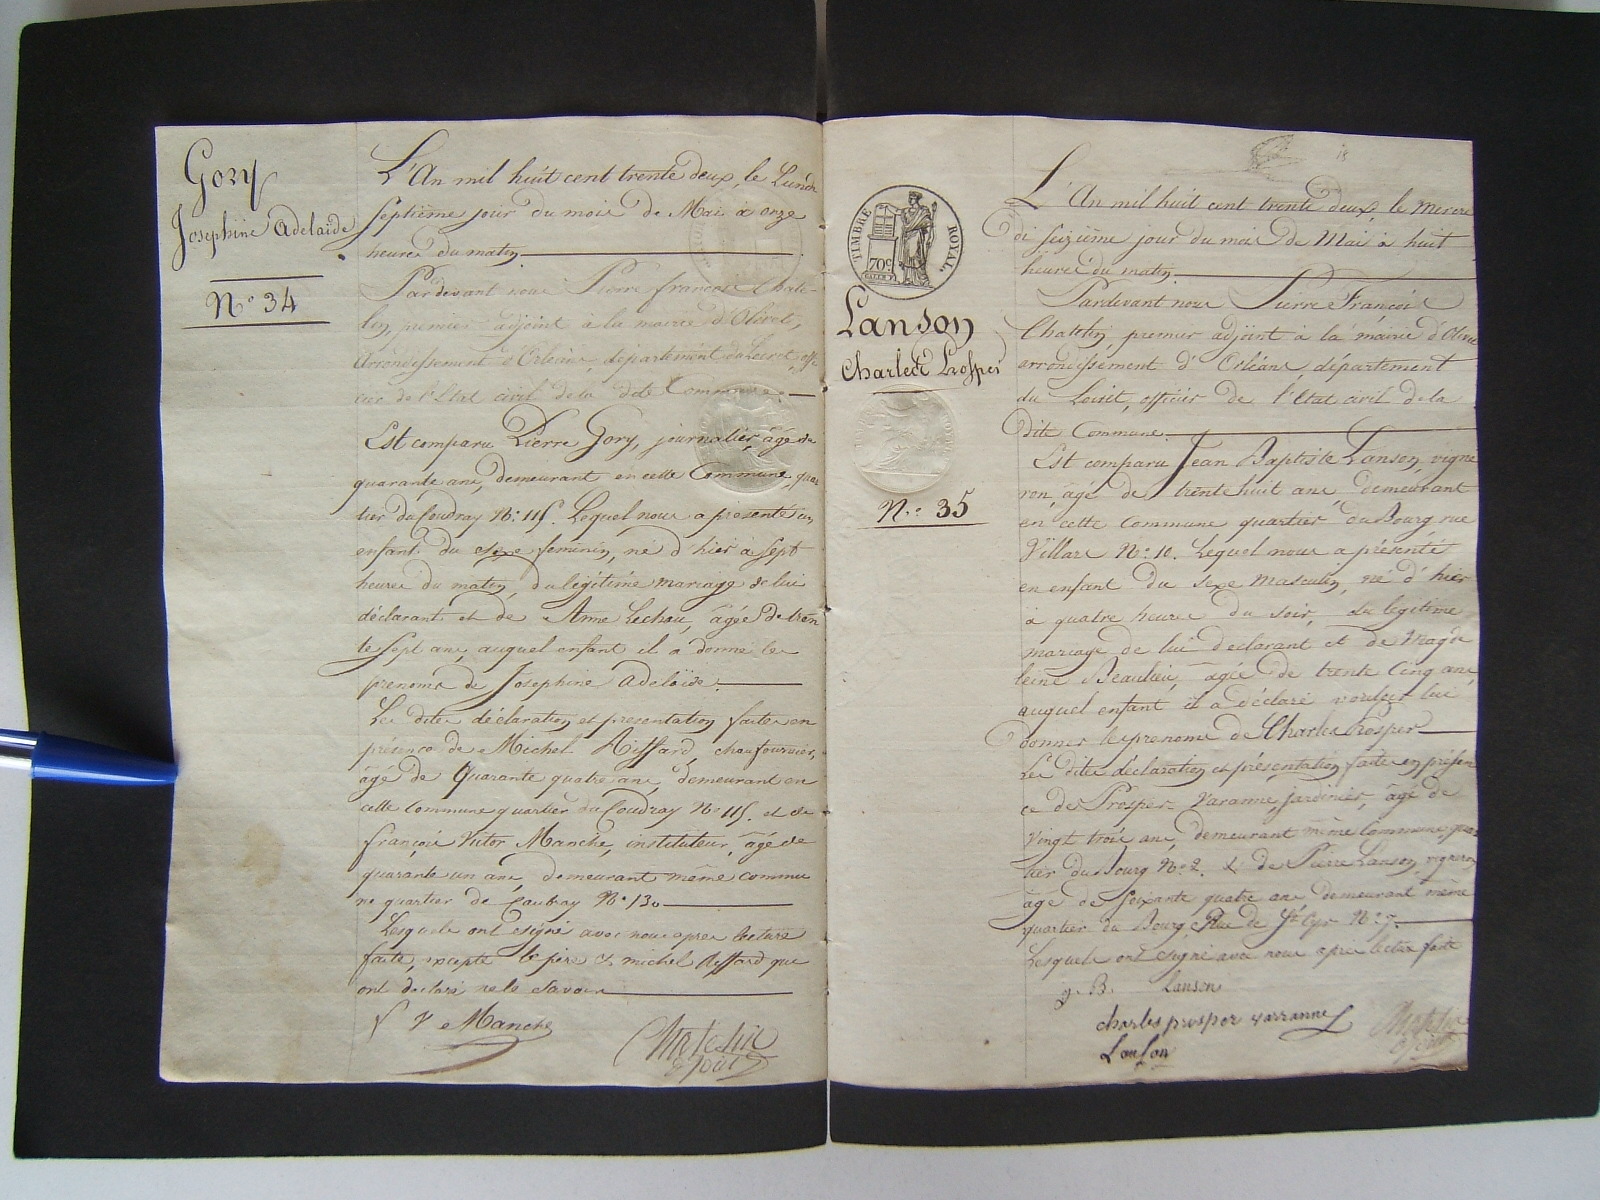 Gory
Josephine Adelaide
N° 34
L'An mil huit cent trente deux, le Lundi
Septième jour du mois de Mai à onze
heures du matin
Pardevant nous Pierre françois Chate-
lin, premier adjoint à la mairie d'Olivet,
Arrondissement d'Orléans, département du Loiret, offi
cier de l'Etat civil de la dite Commune.
Est comparu Pierre Gory, journalier, âgé de
quarante ans, demeurant en cette Commune, quar
tier du Coudray N° 115. Lequel nous a présenté un
enfant du sexe feminin, né d'hier à sept
heures du matin, du légitime mariage de lui
déclarant et de Anne Lechau, âgée de tren
te sept ans, auquel enfant il a donné les
prenoms de Josephine Adelaïde.
Les dites déclaration et présentation faites en
présence de Michel Riffard, chaufournier,
âgé de Quarante quatre ans, demeurant en
cette Commune quartier du Coudray N° 115. et de
françois Victor Manche, instituteur, âgé de
quarante un ans, demeurant même commu
ne quartier de N° 130
Lesquels ont signé avec nous après lecture
faite, excepté le père & michel Riffard que
ont déclaré ne le savoir
f V Manche
Chatelin
adjoint
TIMBRE ROYAL.
70c
Lanson
Charles Prosper
N° 35
L'An mil huit cent trente deux, le mercre
di seizième jour du mois de Mai à huit
heures du matin
Pardevant nous Pierre François
Chatelin, premier adjoint à la mairie d'Olivet
arrondissement d'Orléans, département
du Loiret, officier de l'Etat civil de la
dite Commune.
Est comparu Jean Baptiste Lanson, vigne
ron, âgé de trente huit ans demeurant
en cette Commune quartier du Bourg rue
Villars N° 10. Lequel nous a présenté
un enfant du sexe masculin, né d'hier
à quatre heures du soir, du légitime
mariage de lui déclarant et de Magde
leine Beaulieu, âgée de trente cinq ans,
auquel enfant il a déclaré vouloir lui
donner les prenoms de Charles Prosper
Les dites déclaration et présentation faite en présen
ce de Prosper Varanne, jardinier, âgé de
vingt trois ans, demeurant même Commune quar
tier du Bourg N° 2. & de Pierre Lanson, vigneron
âgé de soixante quatre ans demeurant même
quartier du Bourg, Rue de St Cyr N° 7.
Lesquels ont signé avec nous après lecture faite
g. B. Lanson
charles prosper varranne
Lanson
Chatelin
adjoint